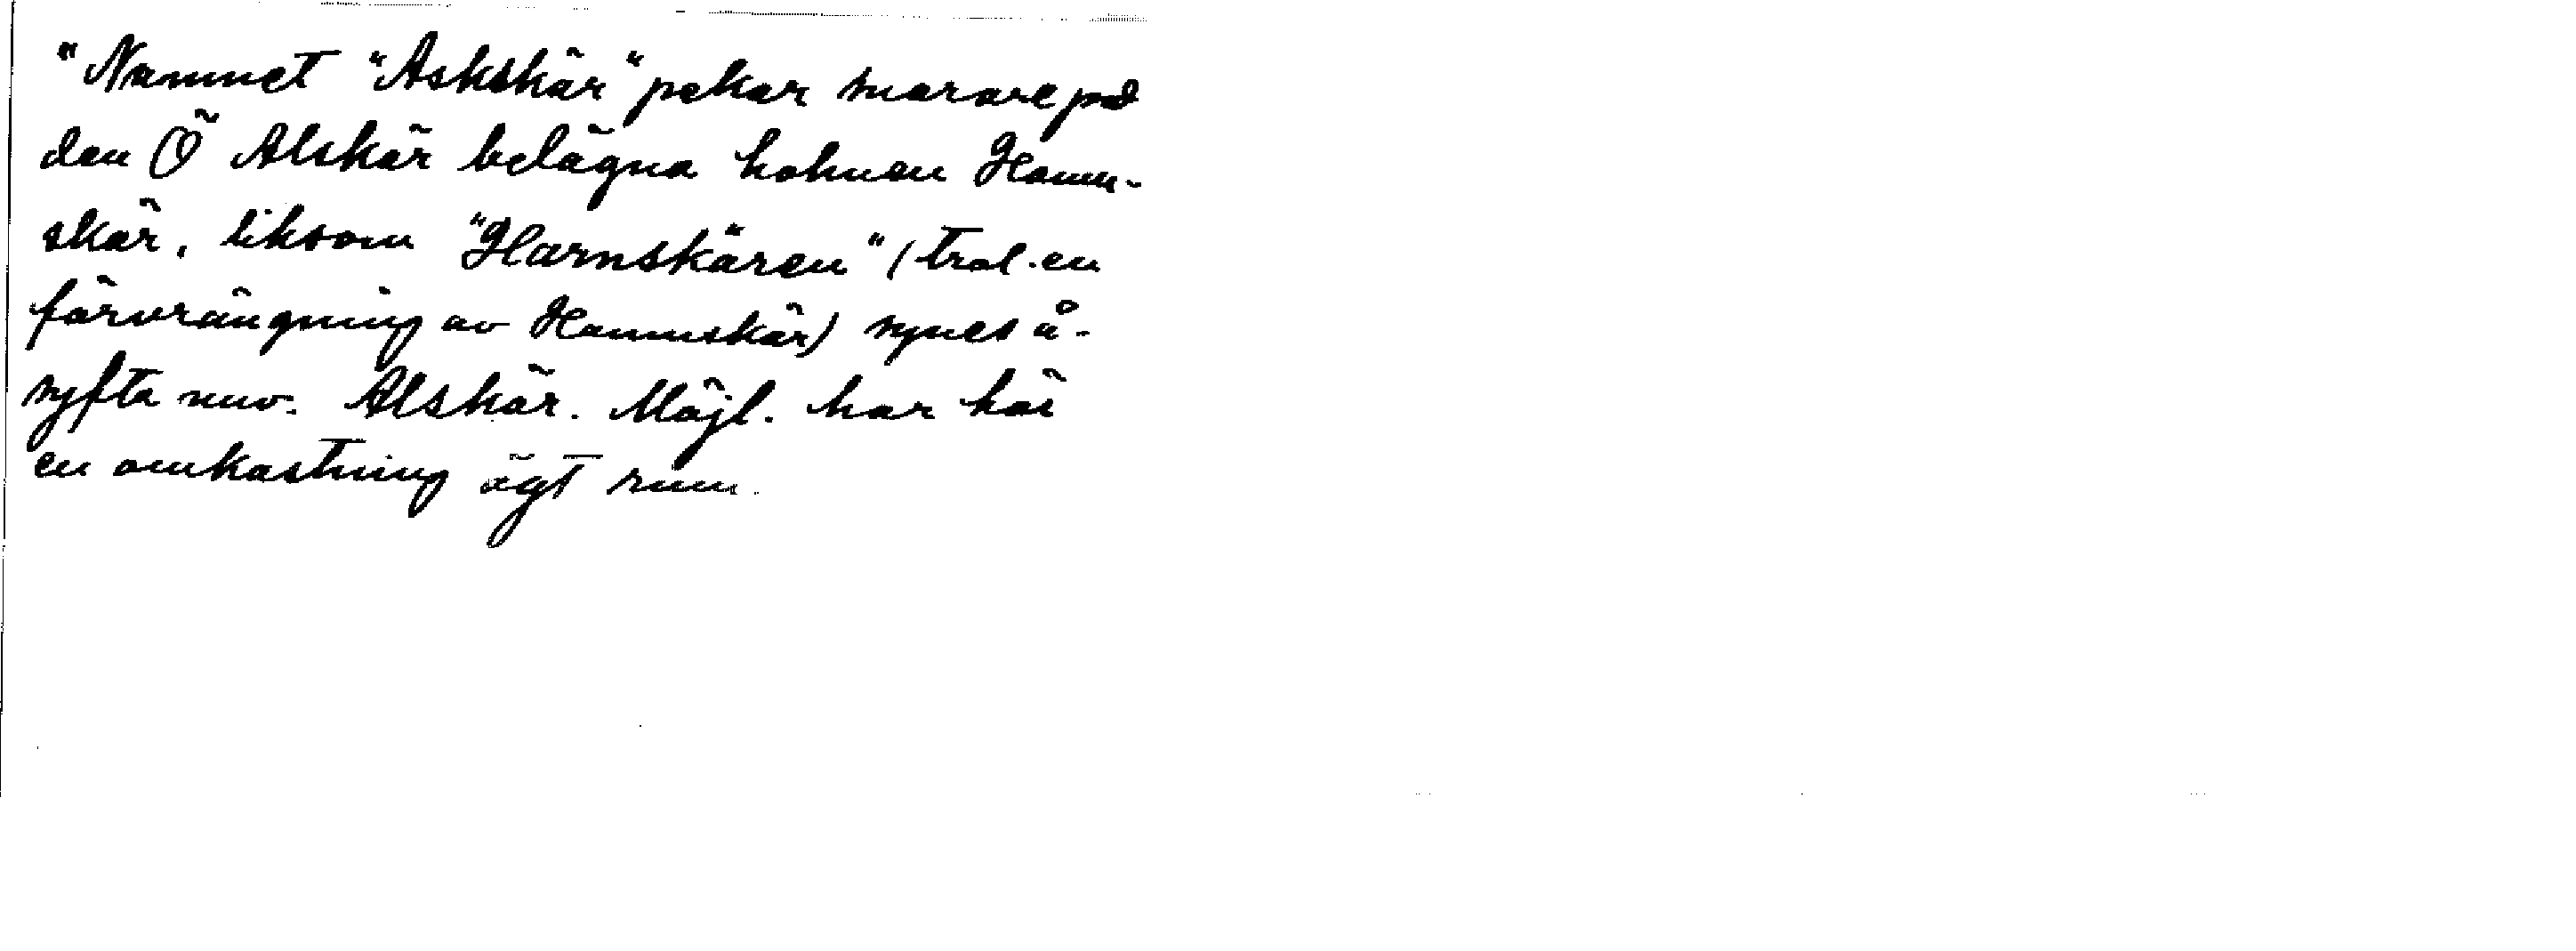 "Namnet "Askskär" pekar snarare på
den Ö Alskär belägna holmen Hamn-
skär, liksom "Harnskären" (trol. en
förvrängning av Hamnskär) synes å-
syfta nuv. Alskär. Möjl. har här
en omkastning ägt rum.